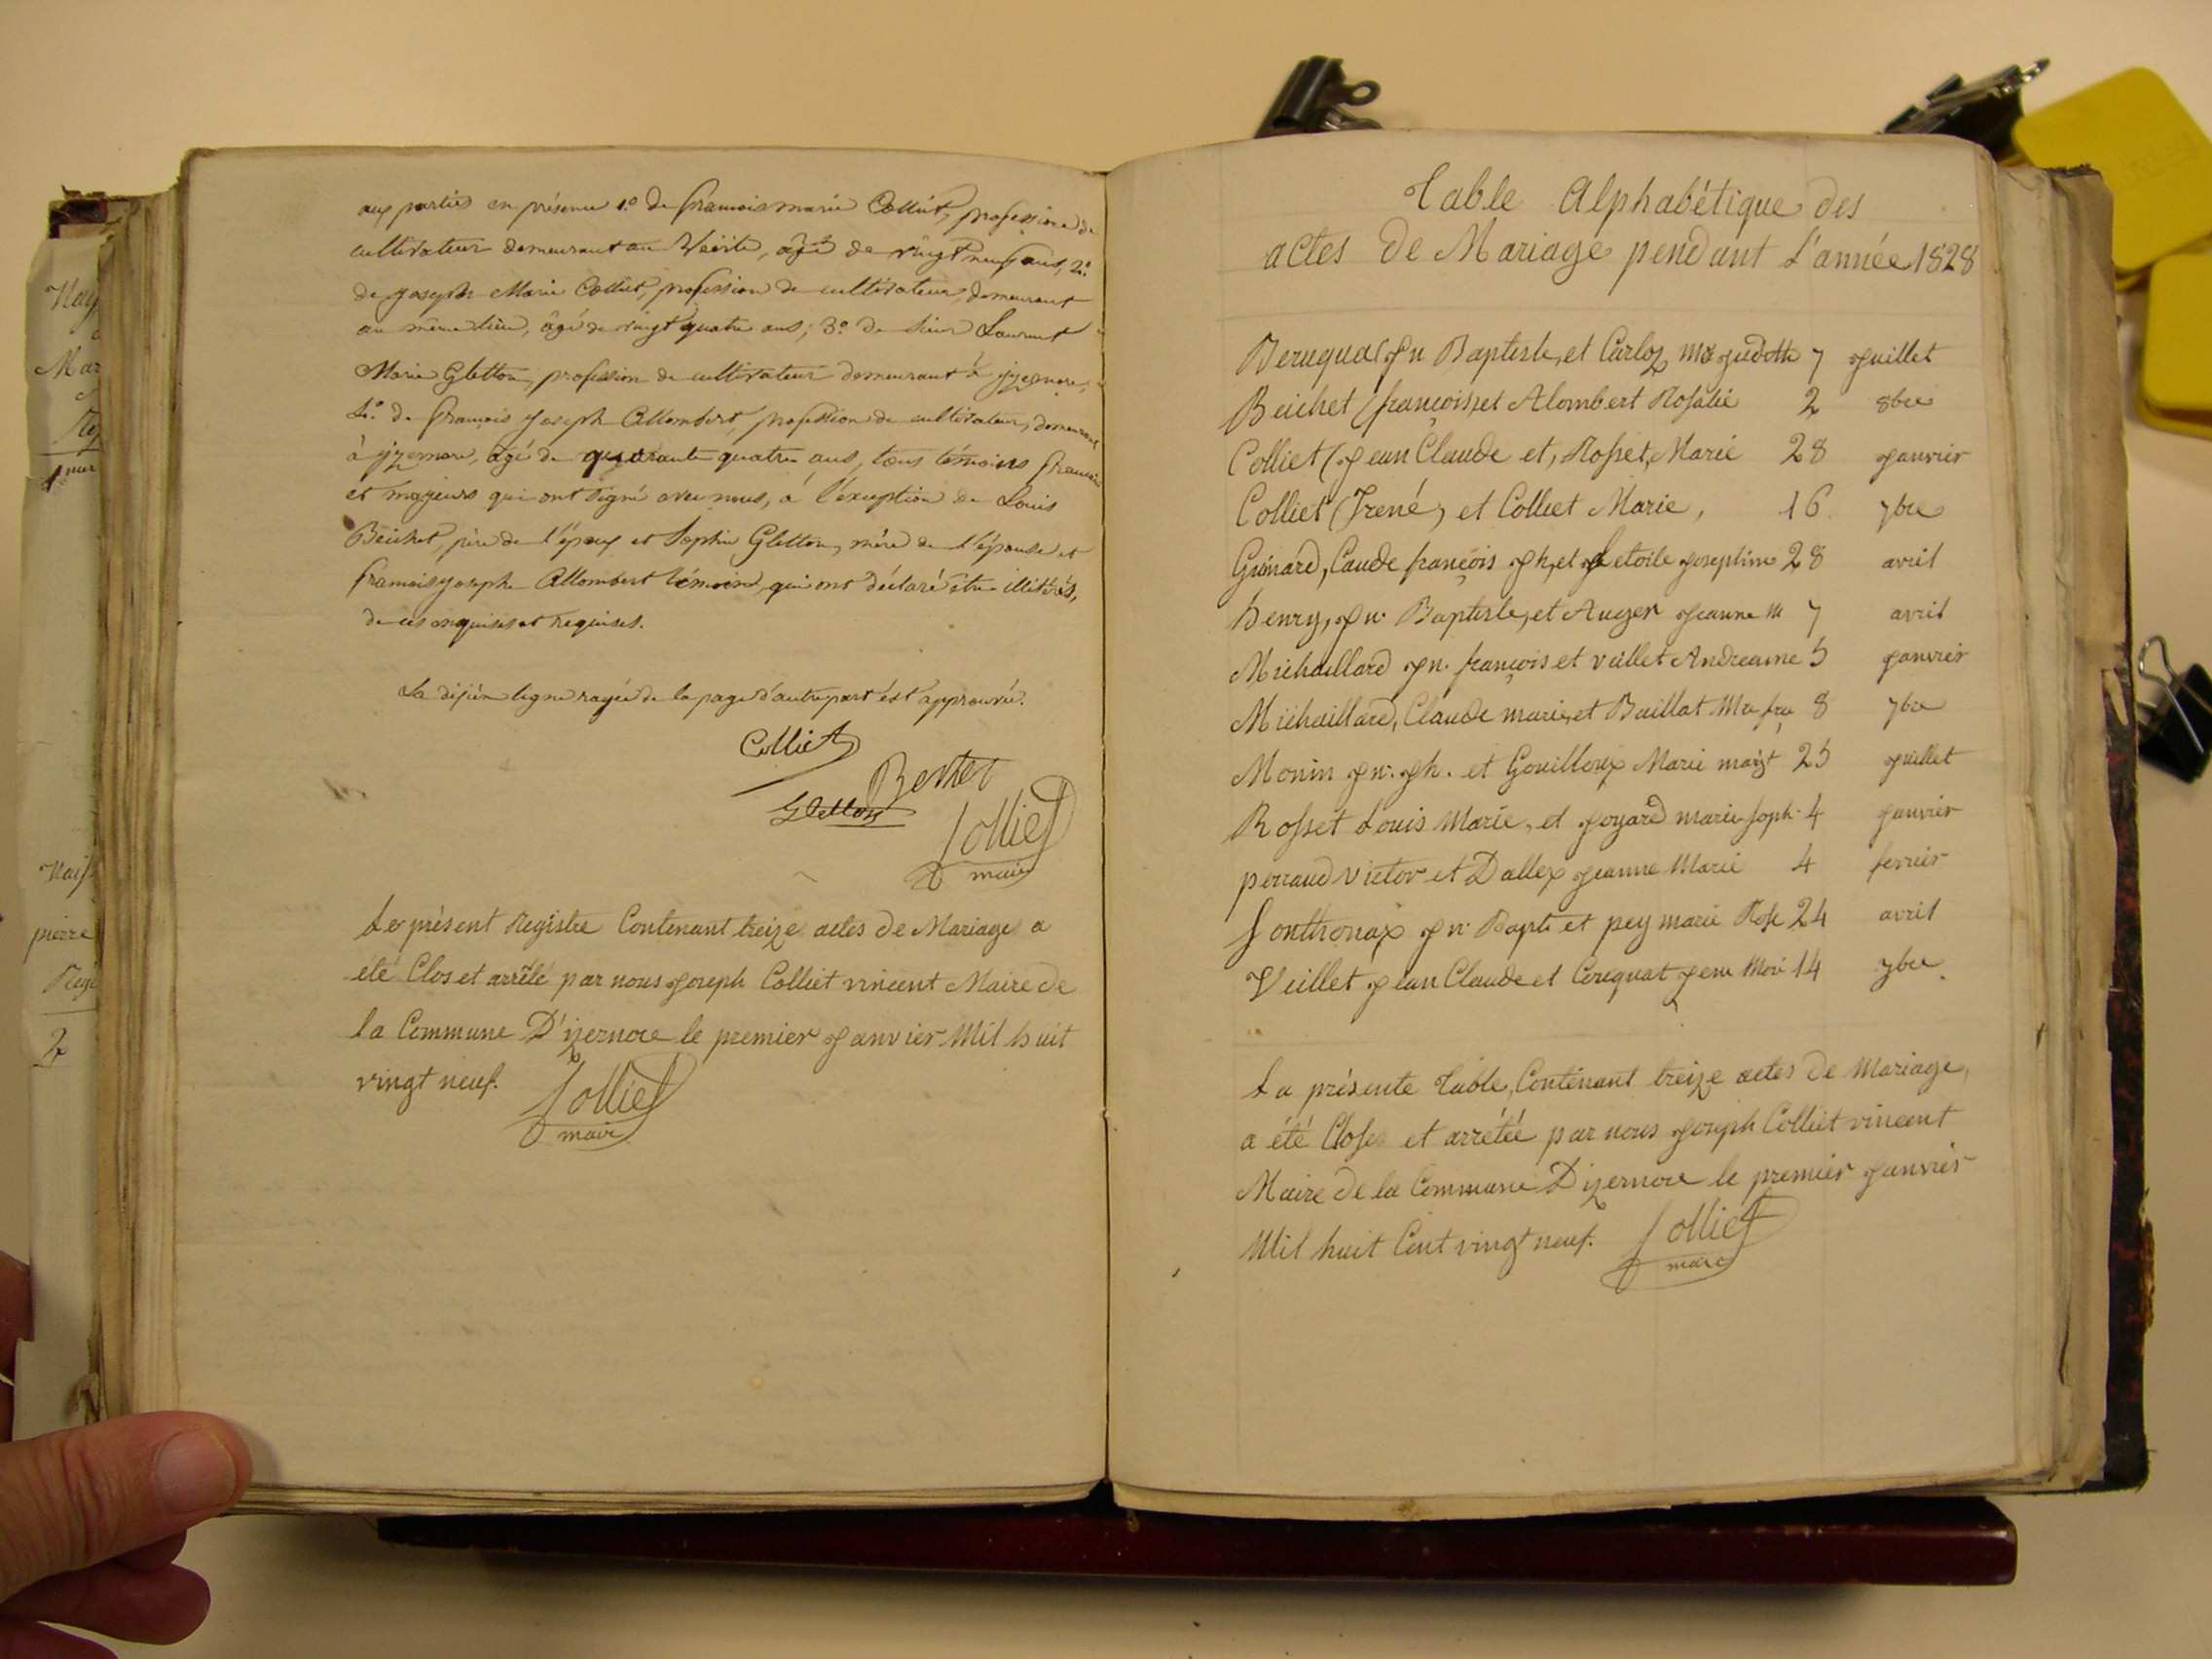 aux parties en présence 1.º de françois marie Colliet, profession de
cultivateur demeurant au Veissiat, âgé de vingt neuf ans, 2.º
de joseph Marie Colliet, profession de cultivateur, demeurant
au même lieu, âgé de vingt quatre ans; 3.º de Sieur Laurent
Marie Gletton, profession de cultivateur demeurant à jzernore,
4.º de françois joseph Allombert, profession de cultivateur, demeurant
à jzernore, âgé de quarante quatre ans, tous témoins français
et majeurs qui ont signé avec nous, à l'éxception de Louis
Beichet, père de l'époux et Sophie Gletton, mère de l'épouse et
françois joseph Allombert témoin, qui ont déclaré être illitérés,
de ces enquises et requises.
La dixième ligne rayée de la page d'autre part est approuvée.
Colliet
Gletton
Colliet
maire
Le présent registre Contenant treize actes de Mariage a
été Clos et arrêté par nous joseph Colliet vincent Maire de
la Commune D'izernore le premier janvier Mil huit
vingt neuf.
Colliet
maire
Nais
Mar
1
Nais
pierre
2
Table Alphabétique des
actes de Mariage pendant L'année 1828
jn Baptiste, et Carloz 7 juillet
Beichet (françois, et Alombert Rosalie 2 8bre
Colliet (jean Claude et, Rosset, Marie 28 janvier
Colliet (Irené, et Colliet Marie, 16 7bre
Guinard, Caude françois jh, et Letoile josephine 28 avril
henry, jn. Baptiste, et Auger jeanne M 7 avril
Michaillard jn. françois et veillet Andreanne 5 janvier
Michaillard, Claude marie, et Baillat Mie fse 8 7bre
Monin jn. jh. et Gouilloux Marie margt 25 juillet
Rosset Louis Marie, et joyard marie soph. 4 janvier
perraud victor et Dallex jeanne Marie 4 fevrier
Sonthonax jn. Bapte et pey marie Rose 24 avril
Veillet jean Claude et Cerequat jene Mari 14 7bre
La présente Table, Contenant treize actes de Mariage,
a été Close et arrêtée par nous joseph Colliet vincent
Maire de la Commune Dizernore le premier janvier
Mil huit Cent vingt neuf.
Colliet
maire